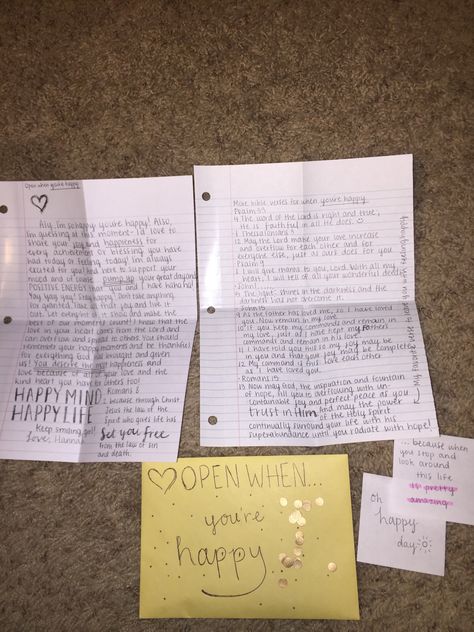 Open when you're happy
Aly, I'm so happy you're happy! Also,
I'm guessing at this moment. I'd love to
share your joy and happiness for
every achievement or blessing you have
had today or feeling today! I'm always
excited for you and here to support your
mood and of course pump up your great day and
POSITIVE ENERGY that you and I have haha!
Yay yay yay! Stay happy! Don't take anything
for granted, take in that joy and live it
out. Let everyone see it, show and make the
best of our moment
love in your heart comes from the Lord and
can overflow and spread to others. You should
remember your happy moments and be thankful
for everything God has brought and given
us! You deserve the most happiness and
love because of all of your love and the
kind heart you have to others too!
HAPPY MIND
HAPPY LIFE
Keep smiling girl!
Love, Hannah
Romans 8
2 because through Christ
Jesus the law of the
Spirit who gives life has
Set you free
from the law of sin
and death.
More bible verses for when you're happy
Psalm 33
4 The word of the Lord is right and true,
He is faithful in all He does.
1 Thessalonians 3
12 May the Lord make your love increase
and overflow for each other and for
everyone else, just as ours does for you
Psalm 9
1 I will give thanks to you, Lord, with all my
heart; I will tell of all your wonderful deeds.
John 1
5 The light shines in the darkness and the
darkness has not overcome it.
John 15
9 As the father has loved me, so I have loved
you. Now remain in my love
10 If you keep my commands and remain in
my love, just as I have kept my Fathers
commands and remain in his love.
11 I have told you this so my joy may be
in you and that your joy may be complete
12 My command is this: Love each other
as I have loved you.
Romans 15
13 Now may God, the inspiration and fountain
of hope, fill you to overflowing with un-
containable joy and perfect peace as you
trust in Him. And may the power
of the Holy Spirit
continually surround your life with his
superabundance until you radiate with hope!
My favorite verse to leave you with feeling happy
OPEN WHEN...
you're
happy
... because when
you stop and
look around
this life
is pretty
amazing
oh
happy
day